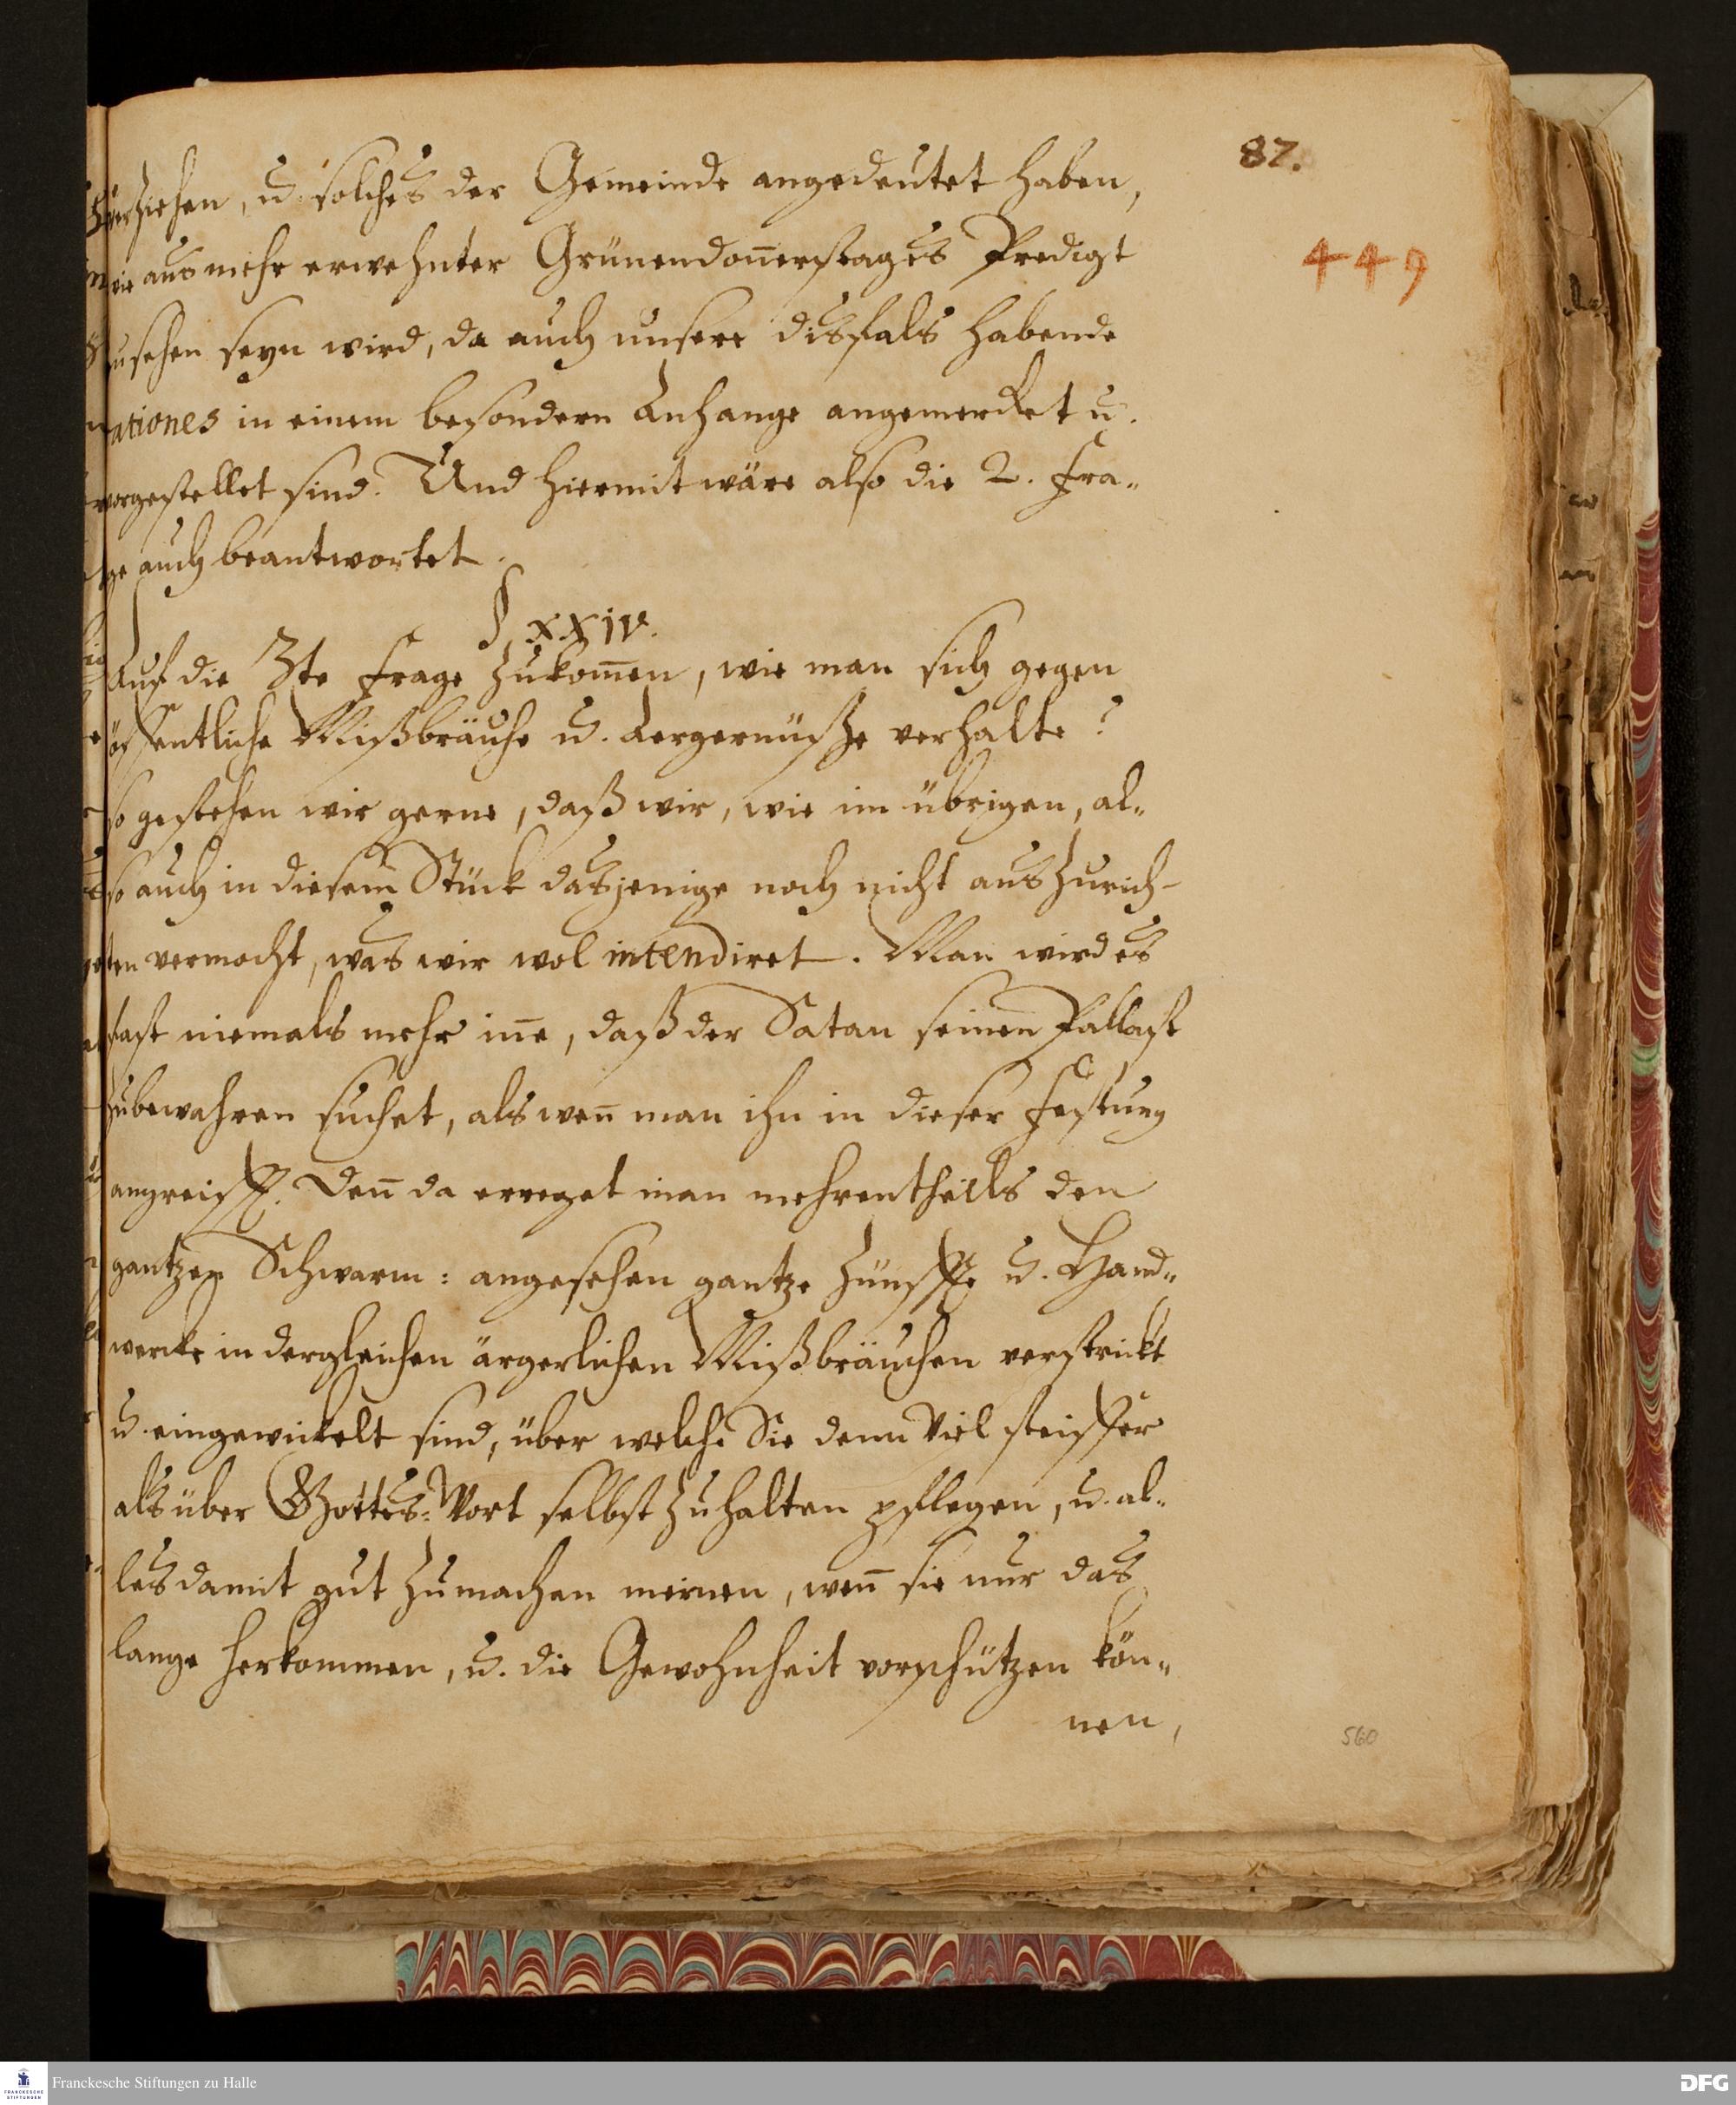 87.
449
verziehen, u. solches der Gemeinde angedeutet haben,
wie aus mehr erwehnter Grünendon̄erstages Predigt
zusehen seyn wird, da auch unsere disfals habende
rationes in einem besondern Anhange angemercket u.
vorgestellet sind. Und hiermit wäre also die 2. Fra„
ge auch beantwortet.
§. xxiv.
Auf die 3te Frage zukom̄en, wie man sich gegen
öffentliche Mißbräuche u. Aergernüße verhalte?
so gestehen wir gerne, daß wir, wie im übrigen, al„
so auch in diesem Stück dasjenige noch nicht auszurich-
ten vermocht, was wir wol intendiret. Man wird es
fast niemals mehr in̄e, daß der Satan seinen Pallast
zubewahren suchet, als wen̄ man ihn in dieser Festung
angreifft. Den̄ da erreget man mehrentheils den
gantzen Schwarm: angesehen gantze Zünffte u. Hand„
wercke in dergleichen ärgerlichen Mißbräuchen verstrickt
u. eingewickelt sind, über welche Sie denn viel steiffer
als über Gottes-Wort selbst zuhalten pflegen, u. al„
les damit gut zumachen meinen, wen̄ sie nur das
lange herkommen, u. die Gewohnheit vorschützen kön„
nen,
560
Franckesche Stiftungen zu Halle
FRANCKESCHE
STIFTUNGEN
DFG